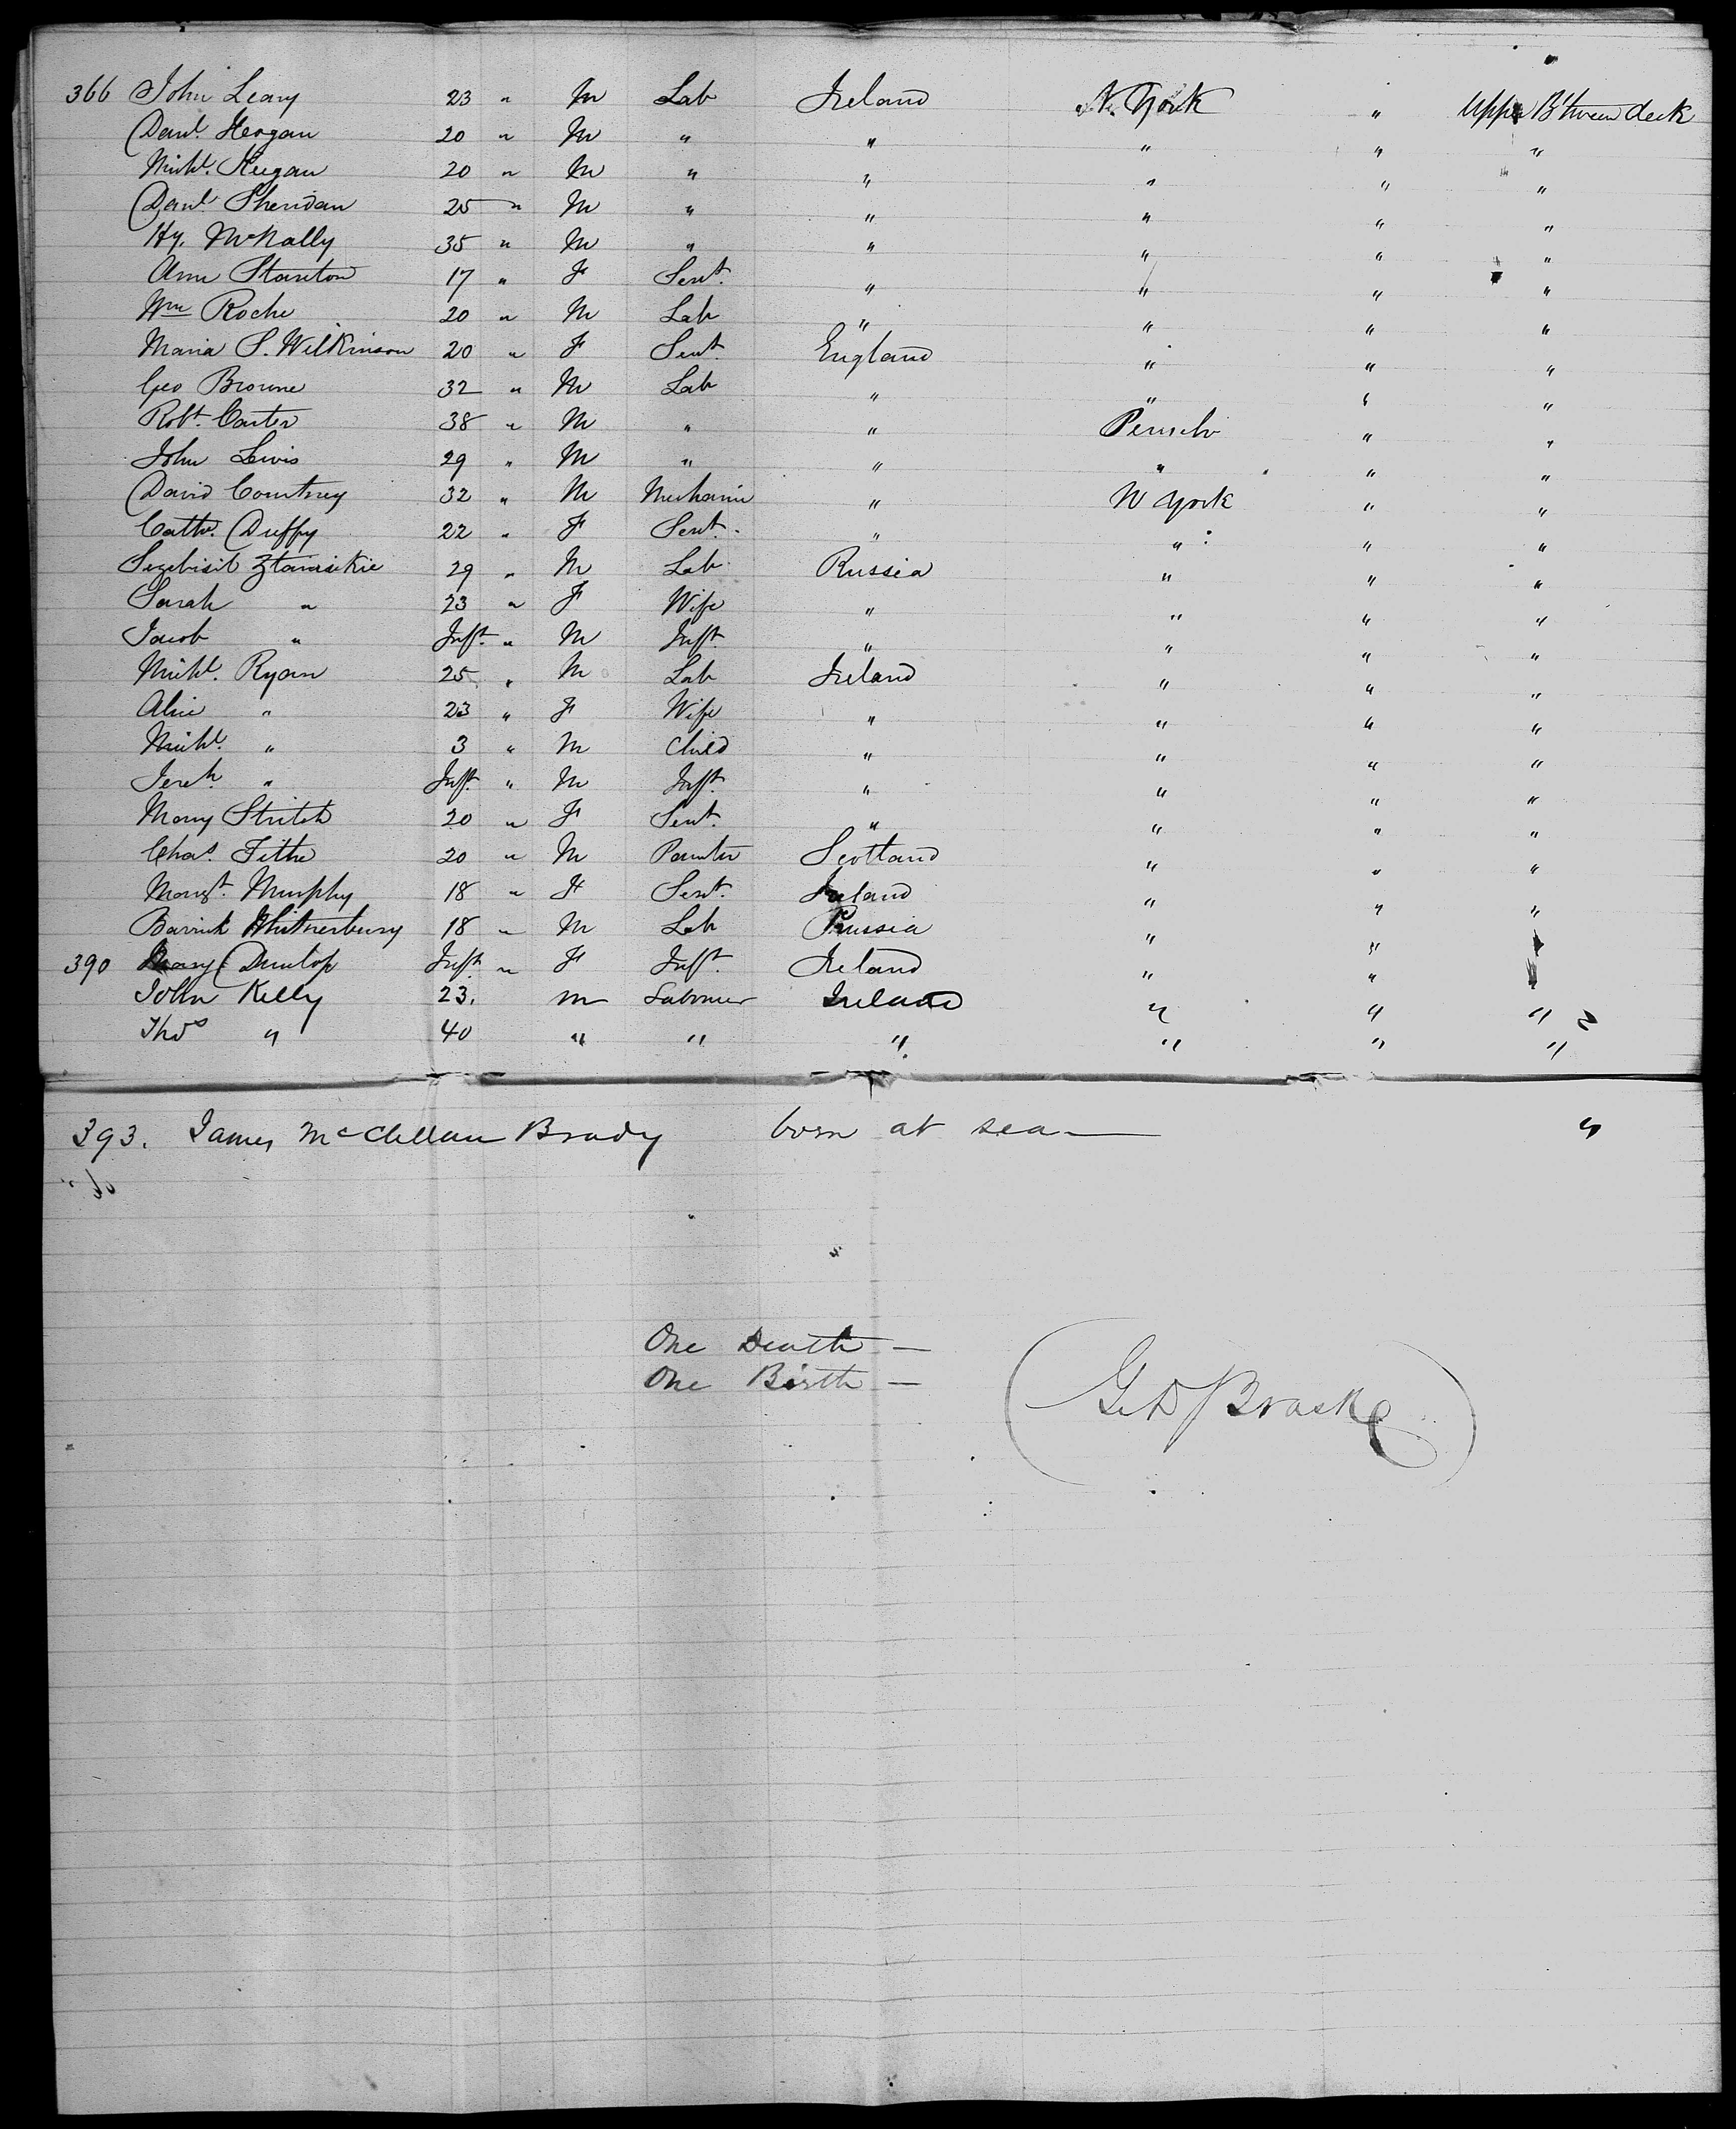 366 John Leary 23 " M Lab Ireland N. York " Upper B'tween deck
Danl. Horgan 20 " M " " " " "
Michl. Keegan 20 " M " " " " "
Danl. Sheridan 25 " M " " " " "
Hy. McNally 35 " M " " " " "
Ann Stanton 17 " F Sert. " " " "
Wm Roche 20 " M Lab " " " "
Maria S. Wilkinson 20 " F Sert. England " " "
Geo Browne 32 " M Lab " " " "
Robt. Carter 38 " M " " " "
John Lewis 29 " M " " " " "
David Courtney 32 " M Mechanic " N York " "
Cathe. Duffy 22 " F Sert. " " " "
29 " M Lab Russia " " "
Sarah " 23 " F Wife " " " "
Jacob " Inft. " M Inft. " " " "
Michl. Ryan 25 " M Lab Ireland " " "
Alice " 23 " F Wife " " " "
Michl. " 3 " M Child " " " "
Jereh. " Inft. " M Inft. " " " "
Mary Stritch 20 " F Sert. " " " "
Chas. 20 " M Painter Scotland " " "
Margt. Murphy 18 " F Sert. Ireland " " "
18 " M Lab " " "
390 Mary Dunlop Inft. " F Inft. Ireland " "
John Kelly 23. M Labourer Ireland " " "
Thos " 40 " " " " " "
393. James McClellan Brady born at sea "
One Death —
One Birth —